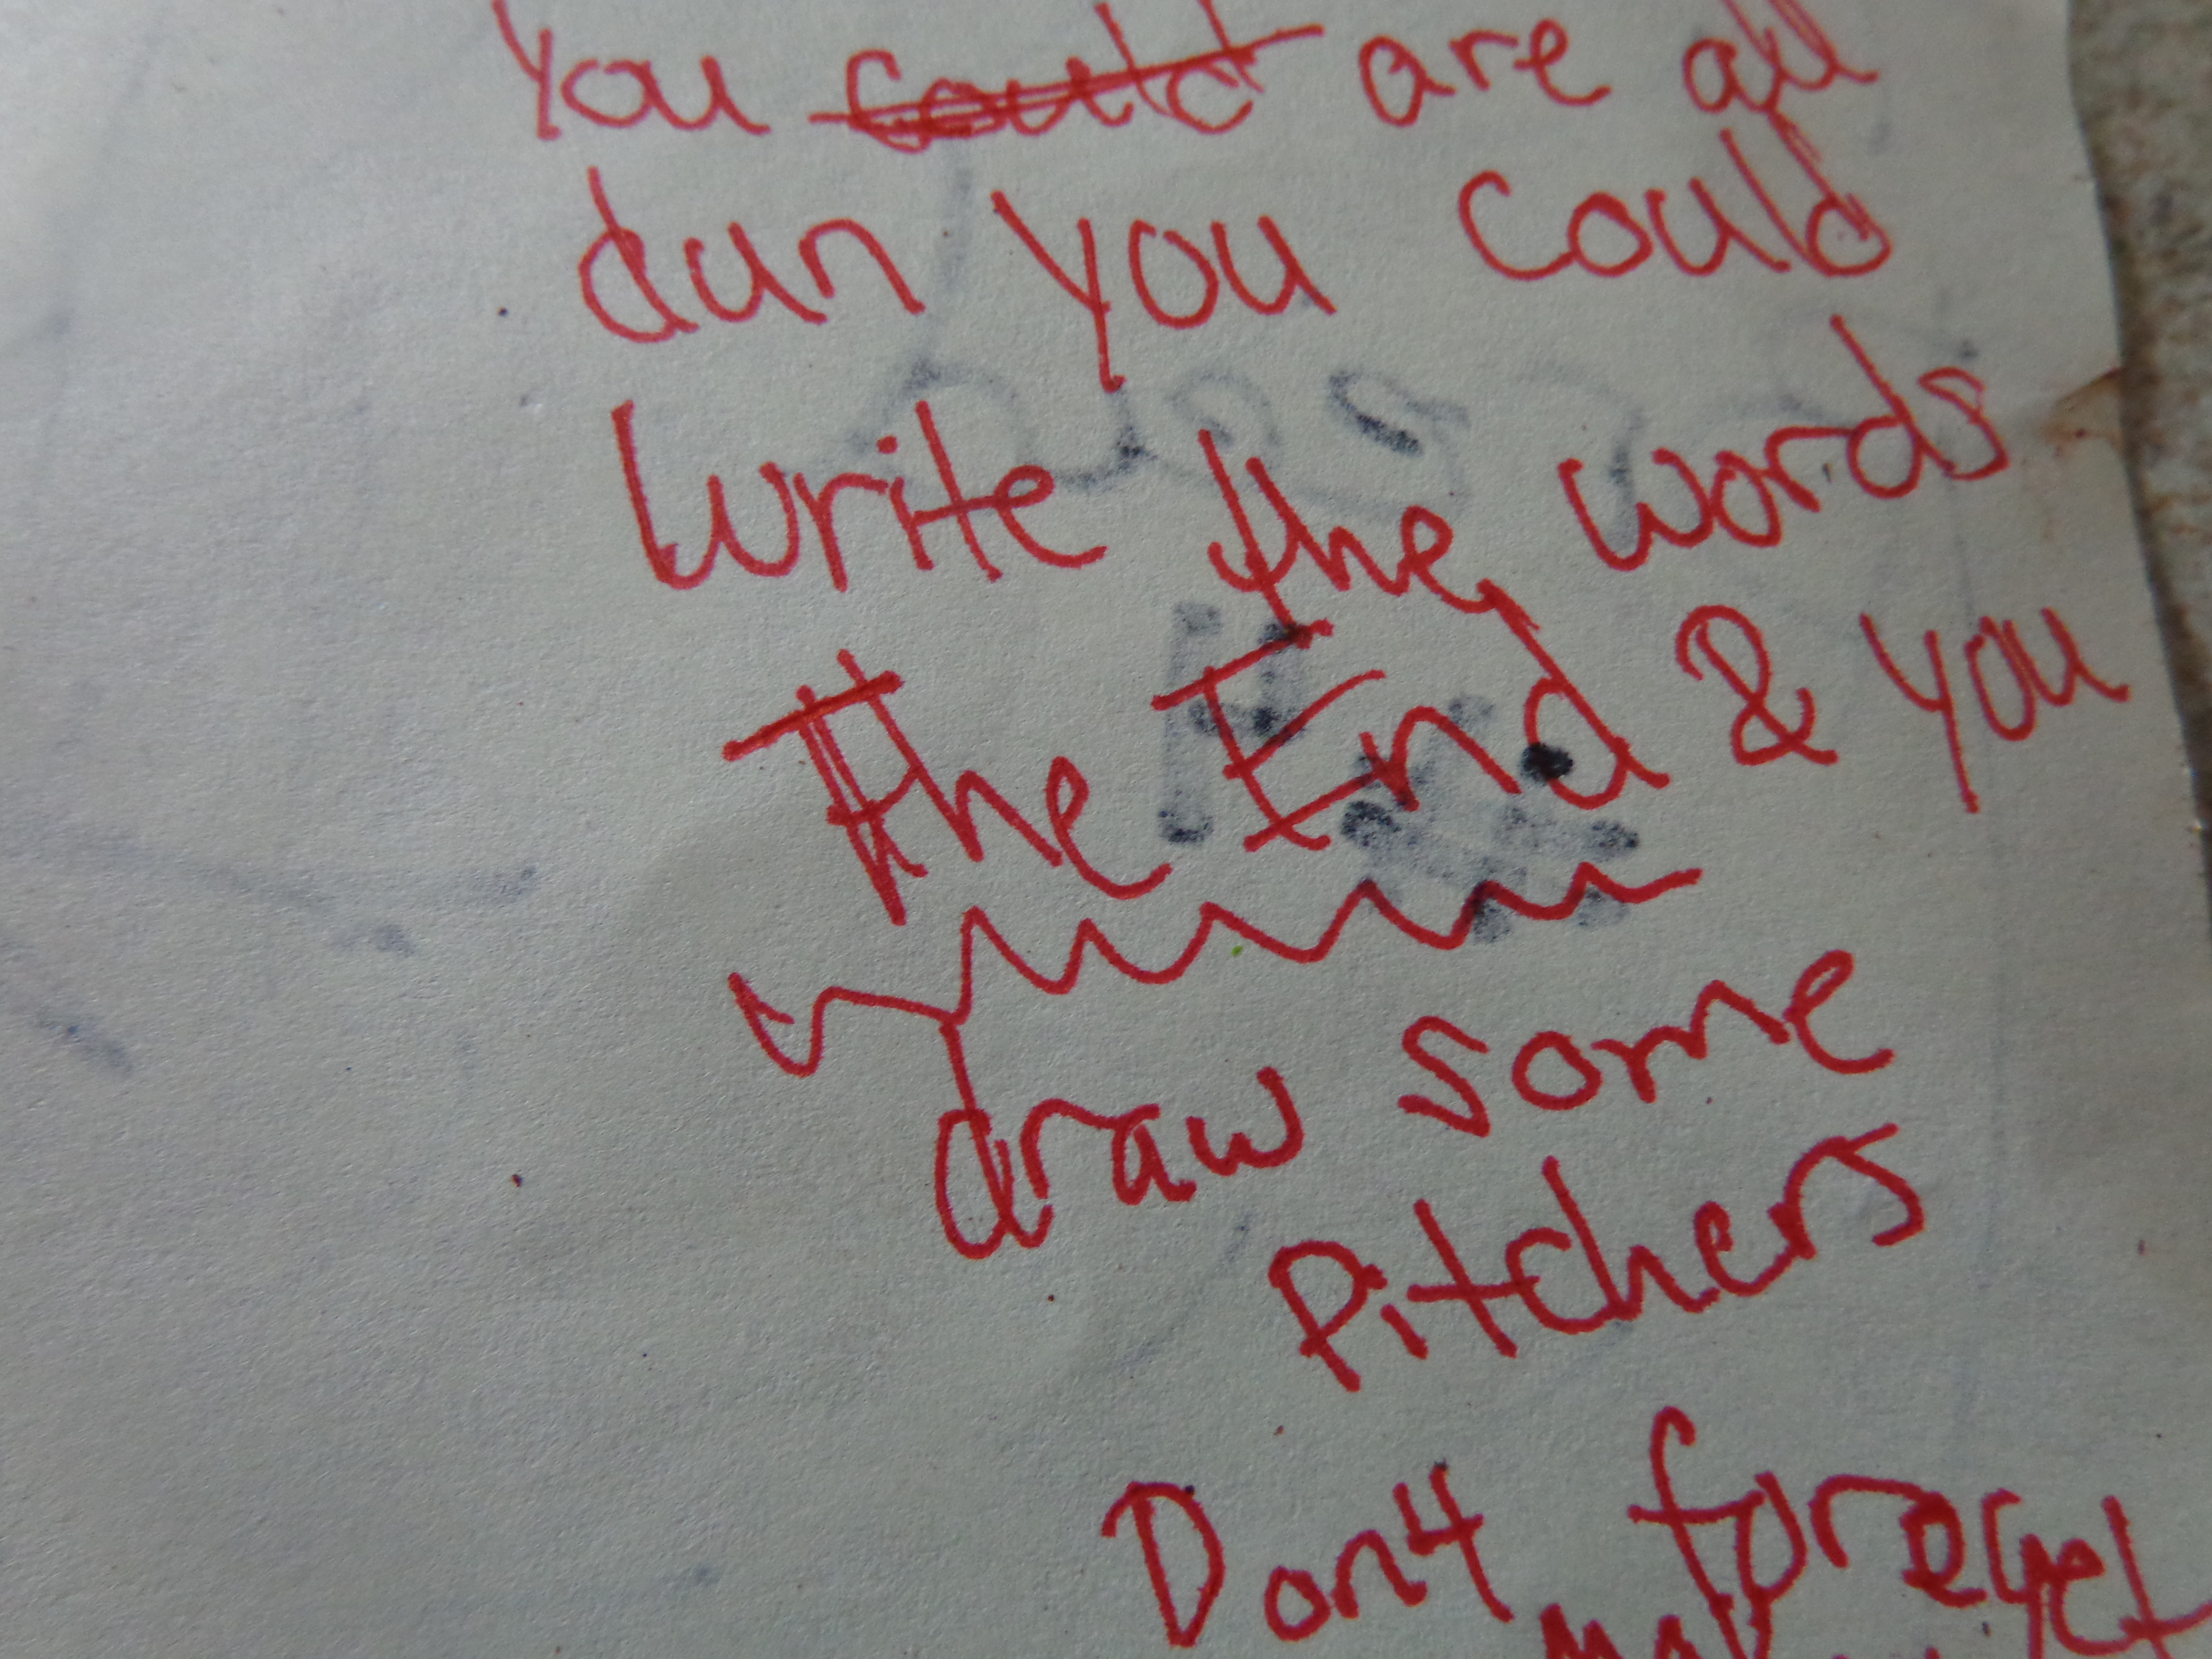 You could are all
dun you could
write the words
The End & you
draw some
Pitchers
Don't foreget